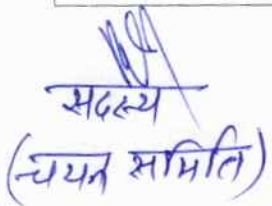 सदस्य
(चयन समिति)